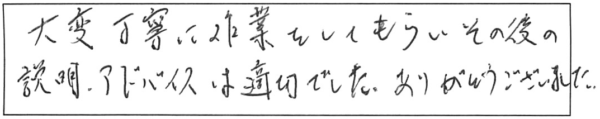 大変丁寧に作業をしてもらいその後の
説明、アドバイスは適切でした。ありがとうございました。